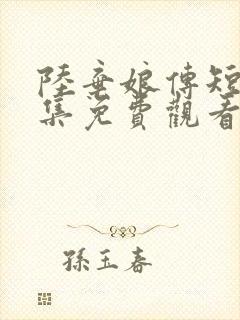 陸棄娘傳短
集免費觀看
孫玉春